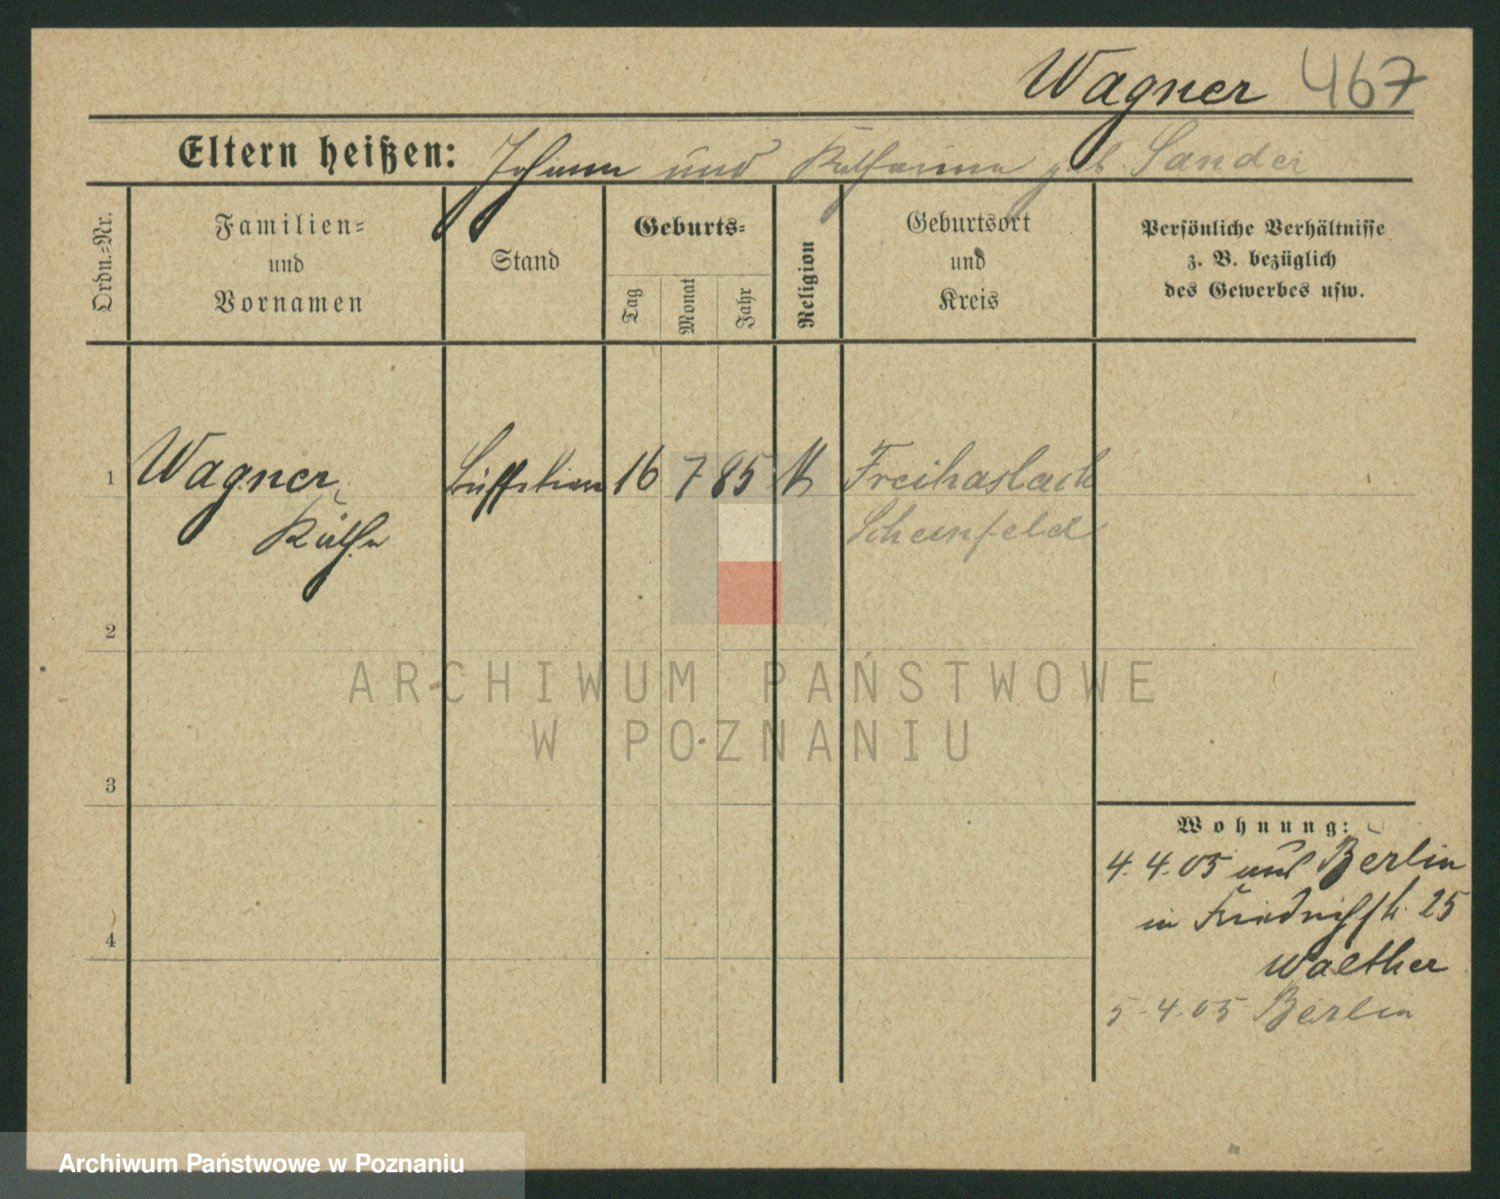 Wagner 467
Eltern heißen: Johann und Katharina geb. Sander
Ordn.-Nr.
Familien-
und
Vornamen
Stand
Geburts-
Tag
Monat
Jahr
Religion
Geburtsort
und
Kreis
Persönliche Verhältnisse
z. B. bezüglich
des Gewerbes usw.
1 Wagner, 16 7 85 Freihaslach
Käthe Scheinfeld
2
ARCHIWUM PAŃSTWOWE
W POZNANIU
3
Wohnung:
4. 4. 05 aus Berlin
in Friedrichstr. 25
4
Walther
5. 4. 05 Berlin
Archiwum Państwowe w Poznaniu